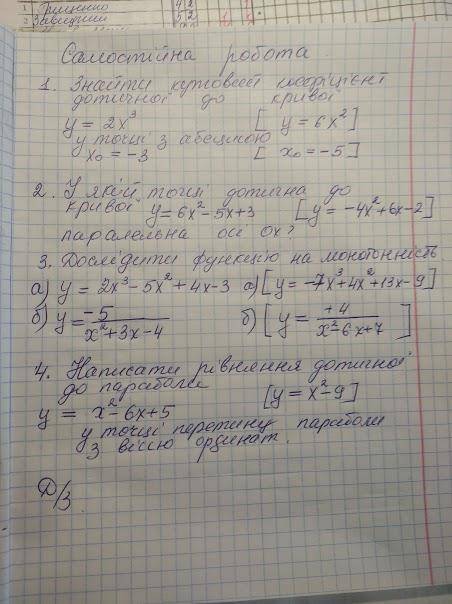 Грищенко 42
2 Завидний 52
Самостійна робота
1. Знайти кутовий коефіцієнт
дотичної до кривої
y = 2x³ [ y = 6x² ]
у точці з абсцисою
x₀ = -3 [ x₀ = -5 ]
2. У якій точці дотична до
кривої y = 6x² - 5x + 3 [ y = -4x² + 6x - 2 ]
паралельна осі ох?
3. Дослідити функцію на монотонність
а) y = 2x³ - 5x² + 4x - 3 а) [ y = -7x³ + 4x² + 13x - 9 ]
б) y = -5 / x² + 3x - 4 б) [ y = +4 / x² - 6x + 7 ]
4. Написати рівняння дотичної
до параболи [ y = x² - 9 ]
y = x² - 6x + 5
у точці перетину параболи
з віссю ординат.
Д/з